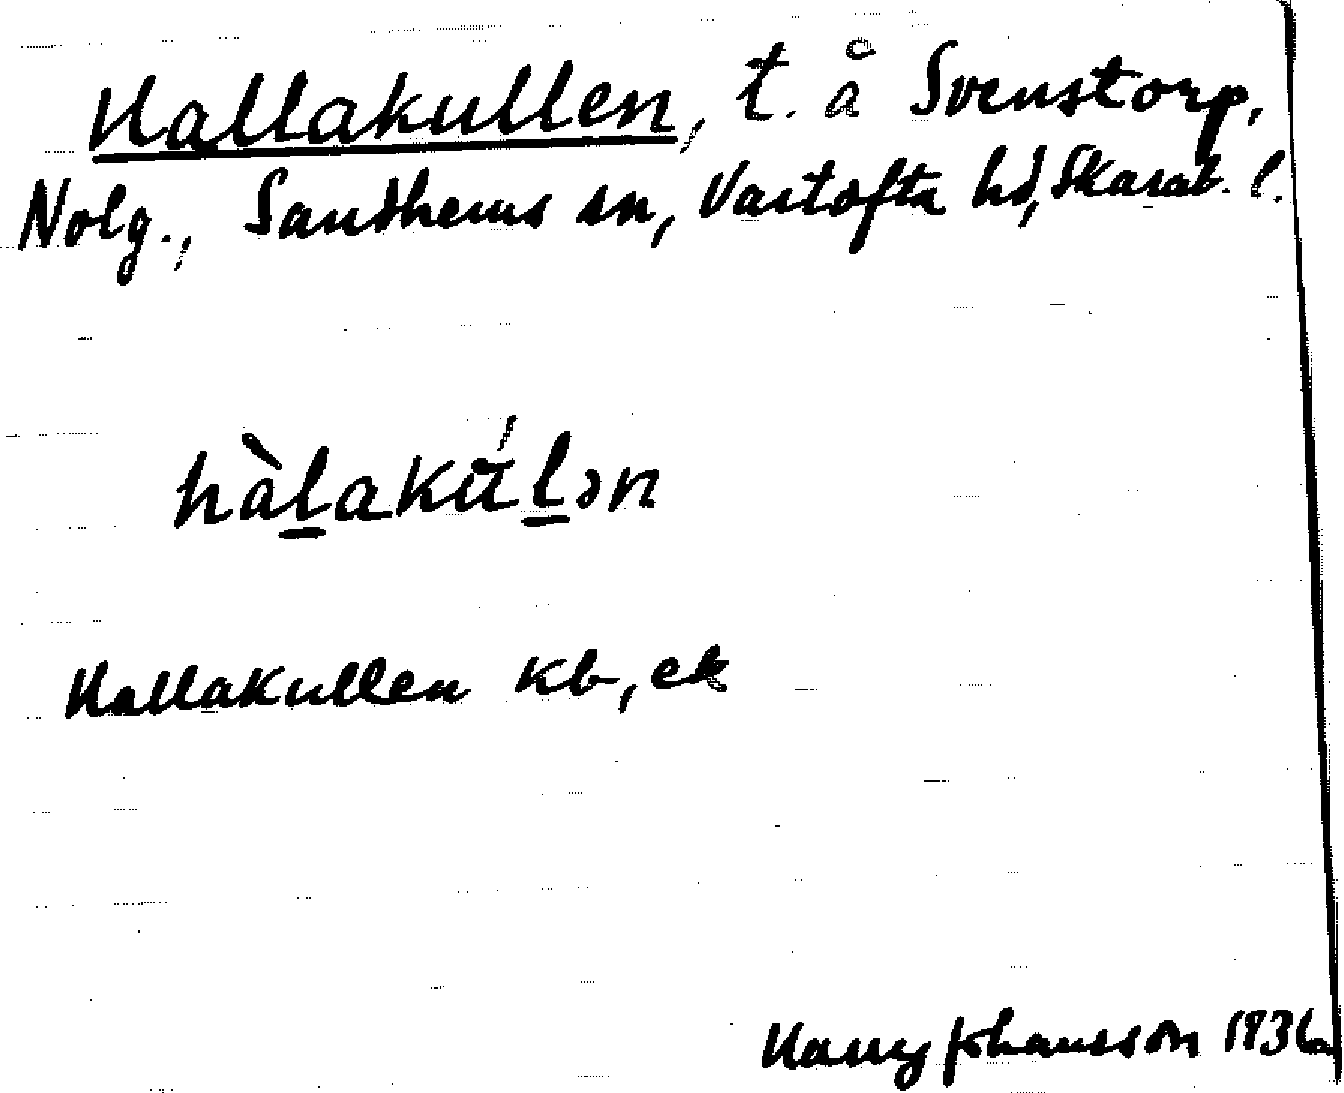 Hallakullen, t. å Svenstorp,
Nolg., Sandhems sn, Vartofta hd, Skarab. l.
hàl̲akú̄l̲ən
Hallakullen kb, ek
Harry Johansson 1936